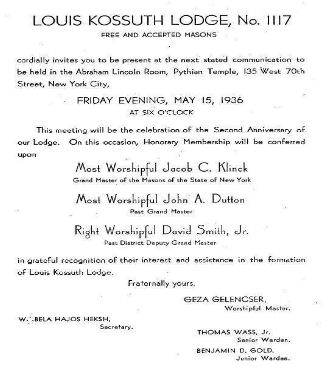 LOUIS KOSSUTH LODGE, No. 1117
FREE AND ACCEPTED MASONS
cordially invites you to be present at the next stated communication to
be held in the Abraham Lincoln Room, Pythian Temple, 135 West 70th
Street, New York City,
FRIDAY EVENING, MAY 15, 1936
AT SIX O'CLOCK
This meeting will be the celebration of the Second Anniversary of
our Lodge. On this occasion, Honorary Membership will be conferred
upon
Most Worshipful Jacob C. Klinck
Grand Master of the Masons of the State of New York
Most Worshipful John A. Dutton
Past Grand Master
Right Worshipful David Smith, Jr.
Past District Deputy Grand Master
in grateful recognition of their interest and assistance in the formation
of Louis Kossuth Lodge.
Fraternally yours,
GEZA GELENCSER,
Worshipful Master.
W∴BELA HAJOS HEKSH,
Secretary.
THOMAS WASS, Jr.
Senior Warden.
BENJAMIN D. GOLD,
Junior Warden.